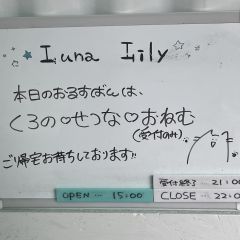 Luna Lily
本日のおるすばんは、
くろの♡せつな♡おねむ
(受付のみ)
ご帰宅お待ちしております!!
受付終了… 21:00
OPEN … 15:00
CLOSE … 22:00